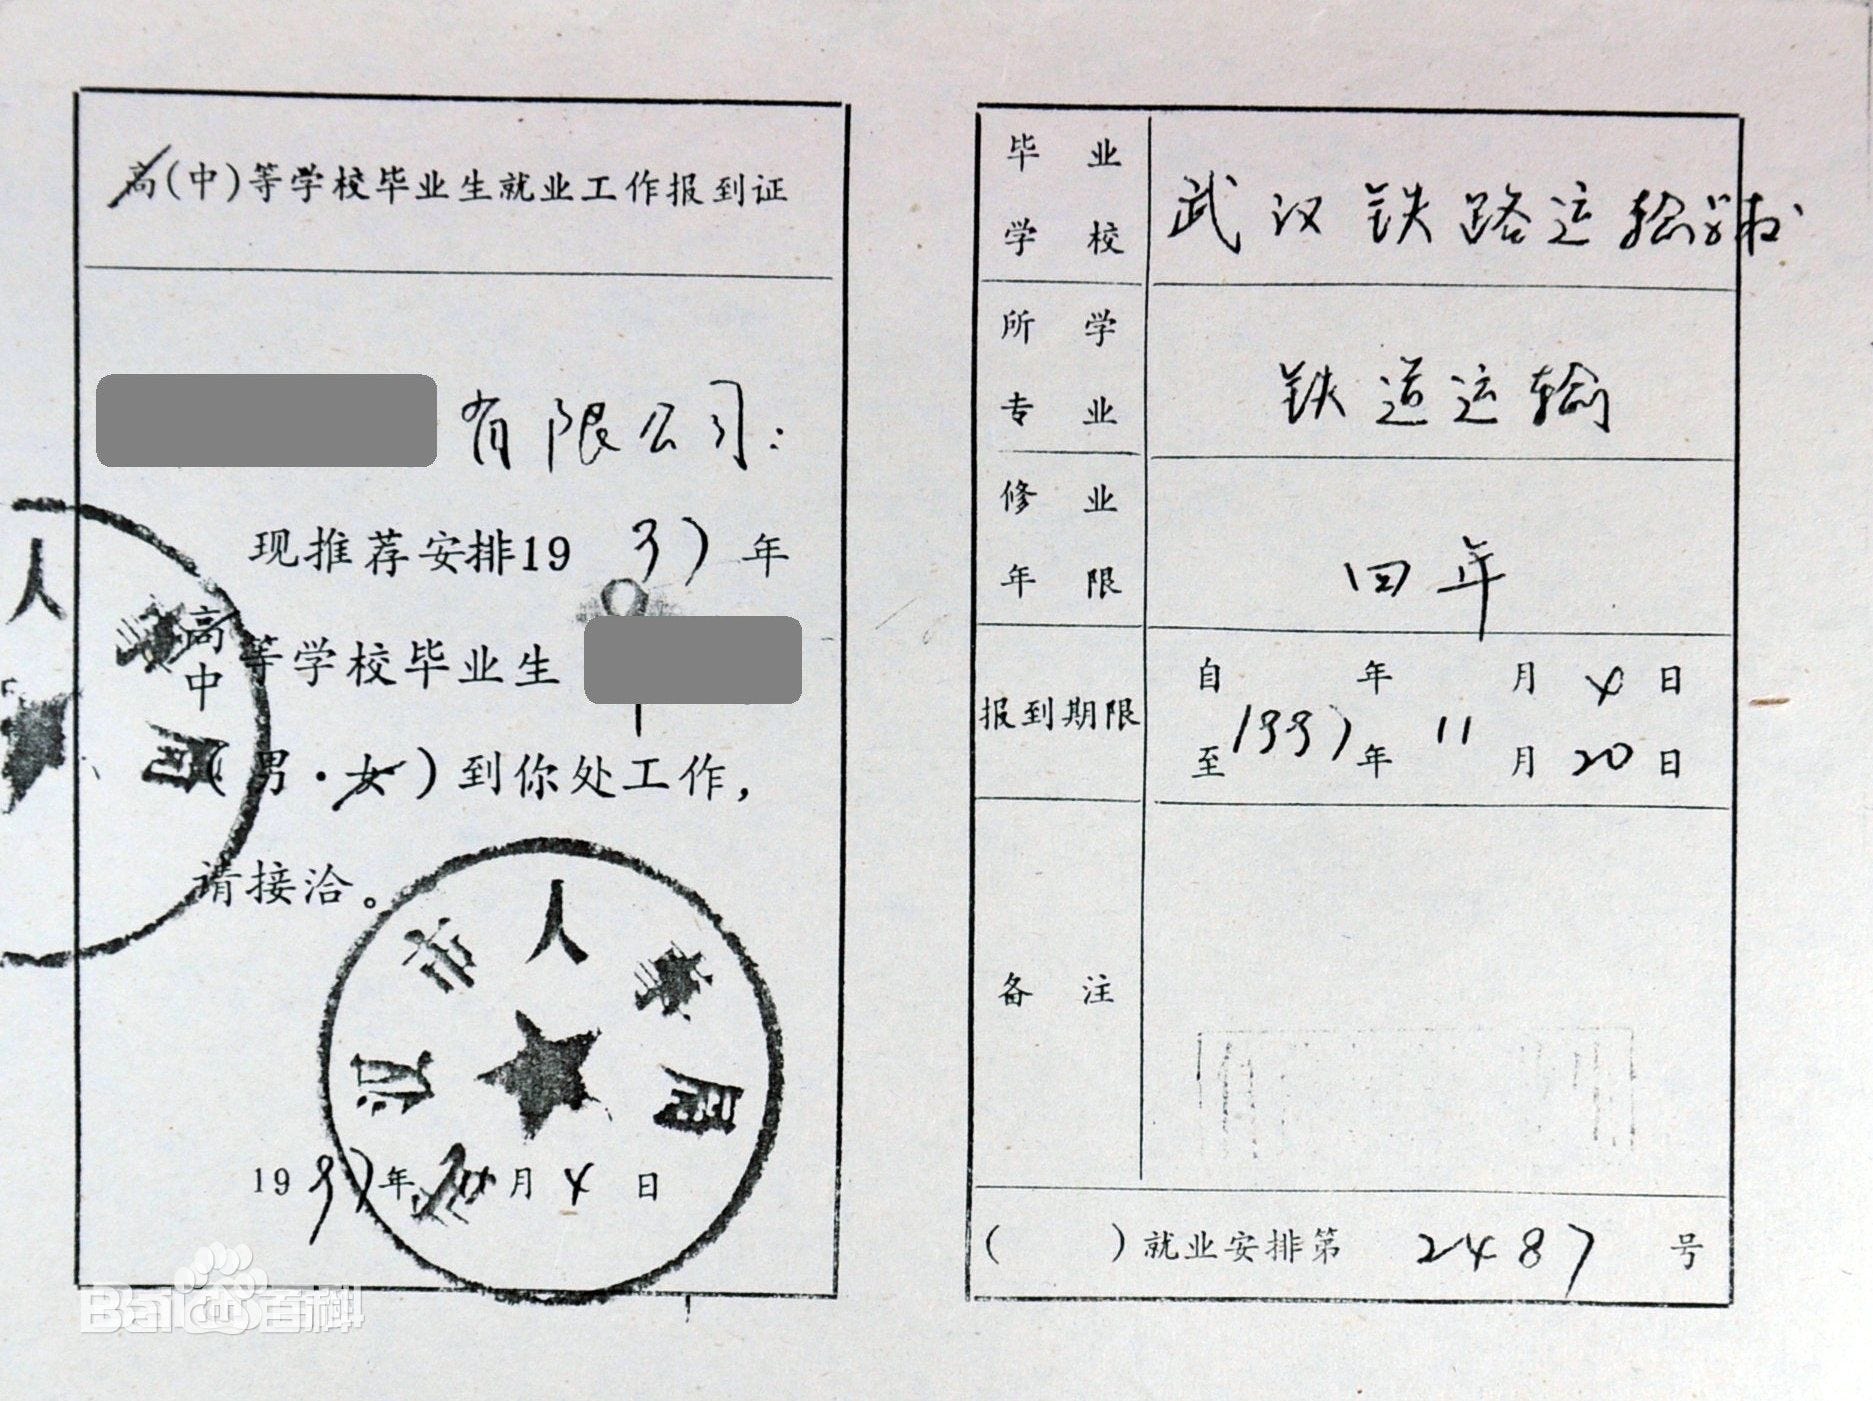 高(中)等学校毕业生就业工作报到证
有限公司:
现推荐安排1997年
高
中
等学校毕业生
(男·女)到你处工作,
请接洽。
市人事局
1997年11月4日
人事局
毕业学校
武汉铁路运输学校
所学专业
铁道运输
修业年限
四年
报到期限
自 年 月 4 日
至1997年11月20日
备注
( )就业安排第2487号
Baidu百科